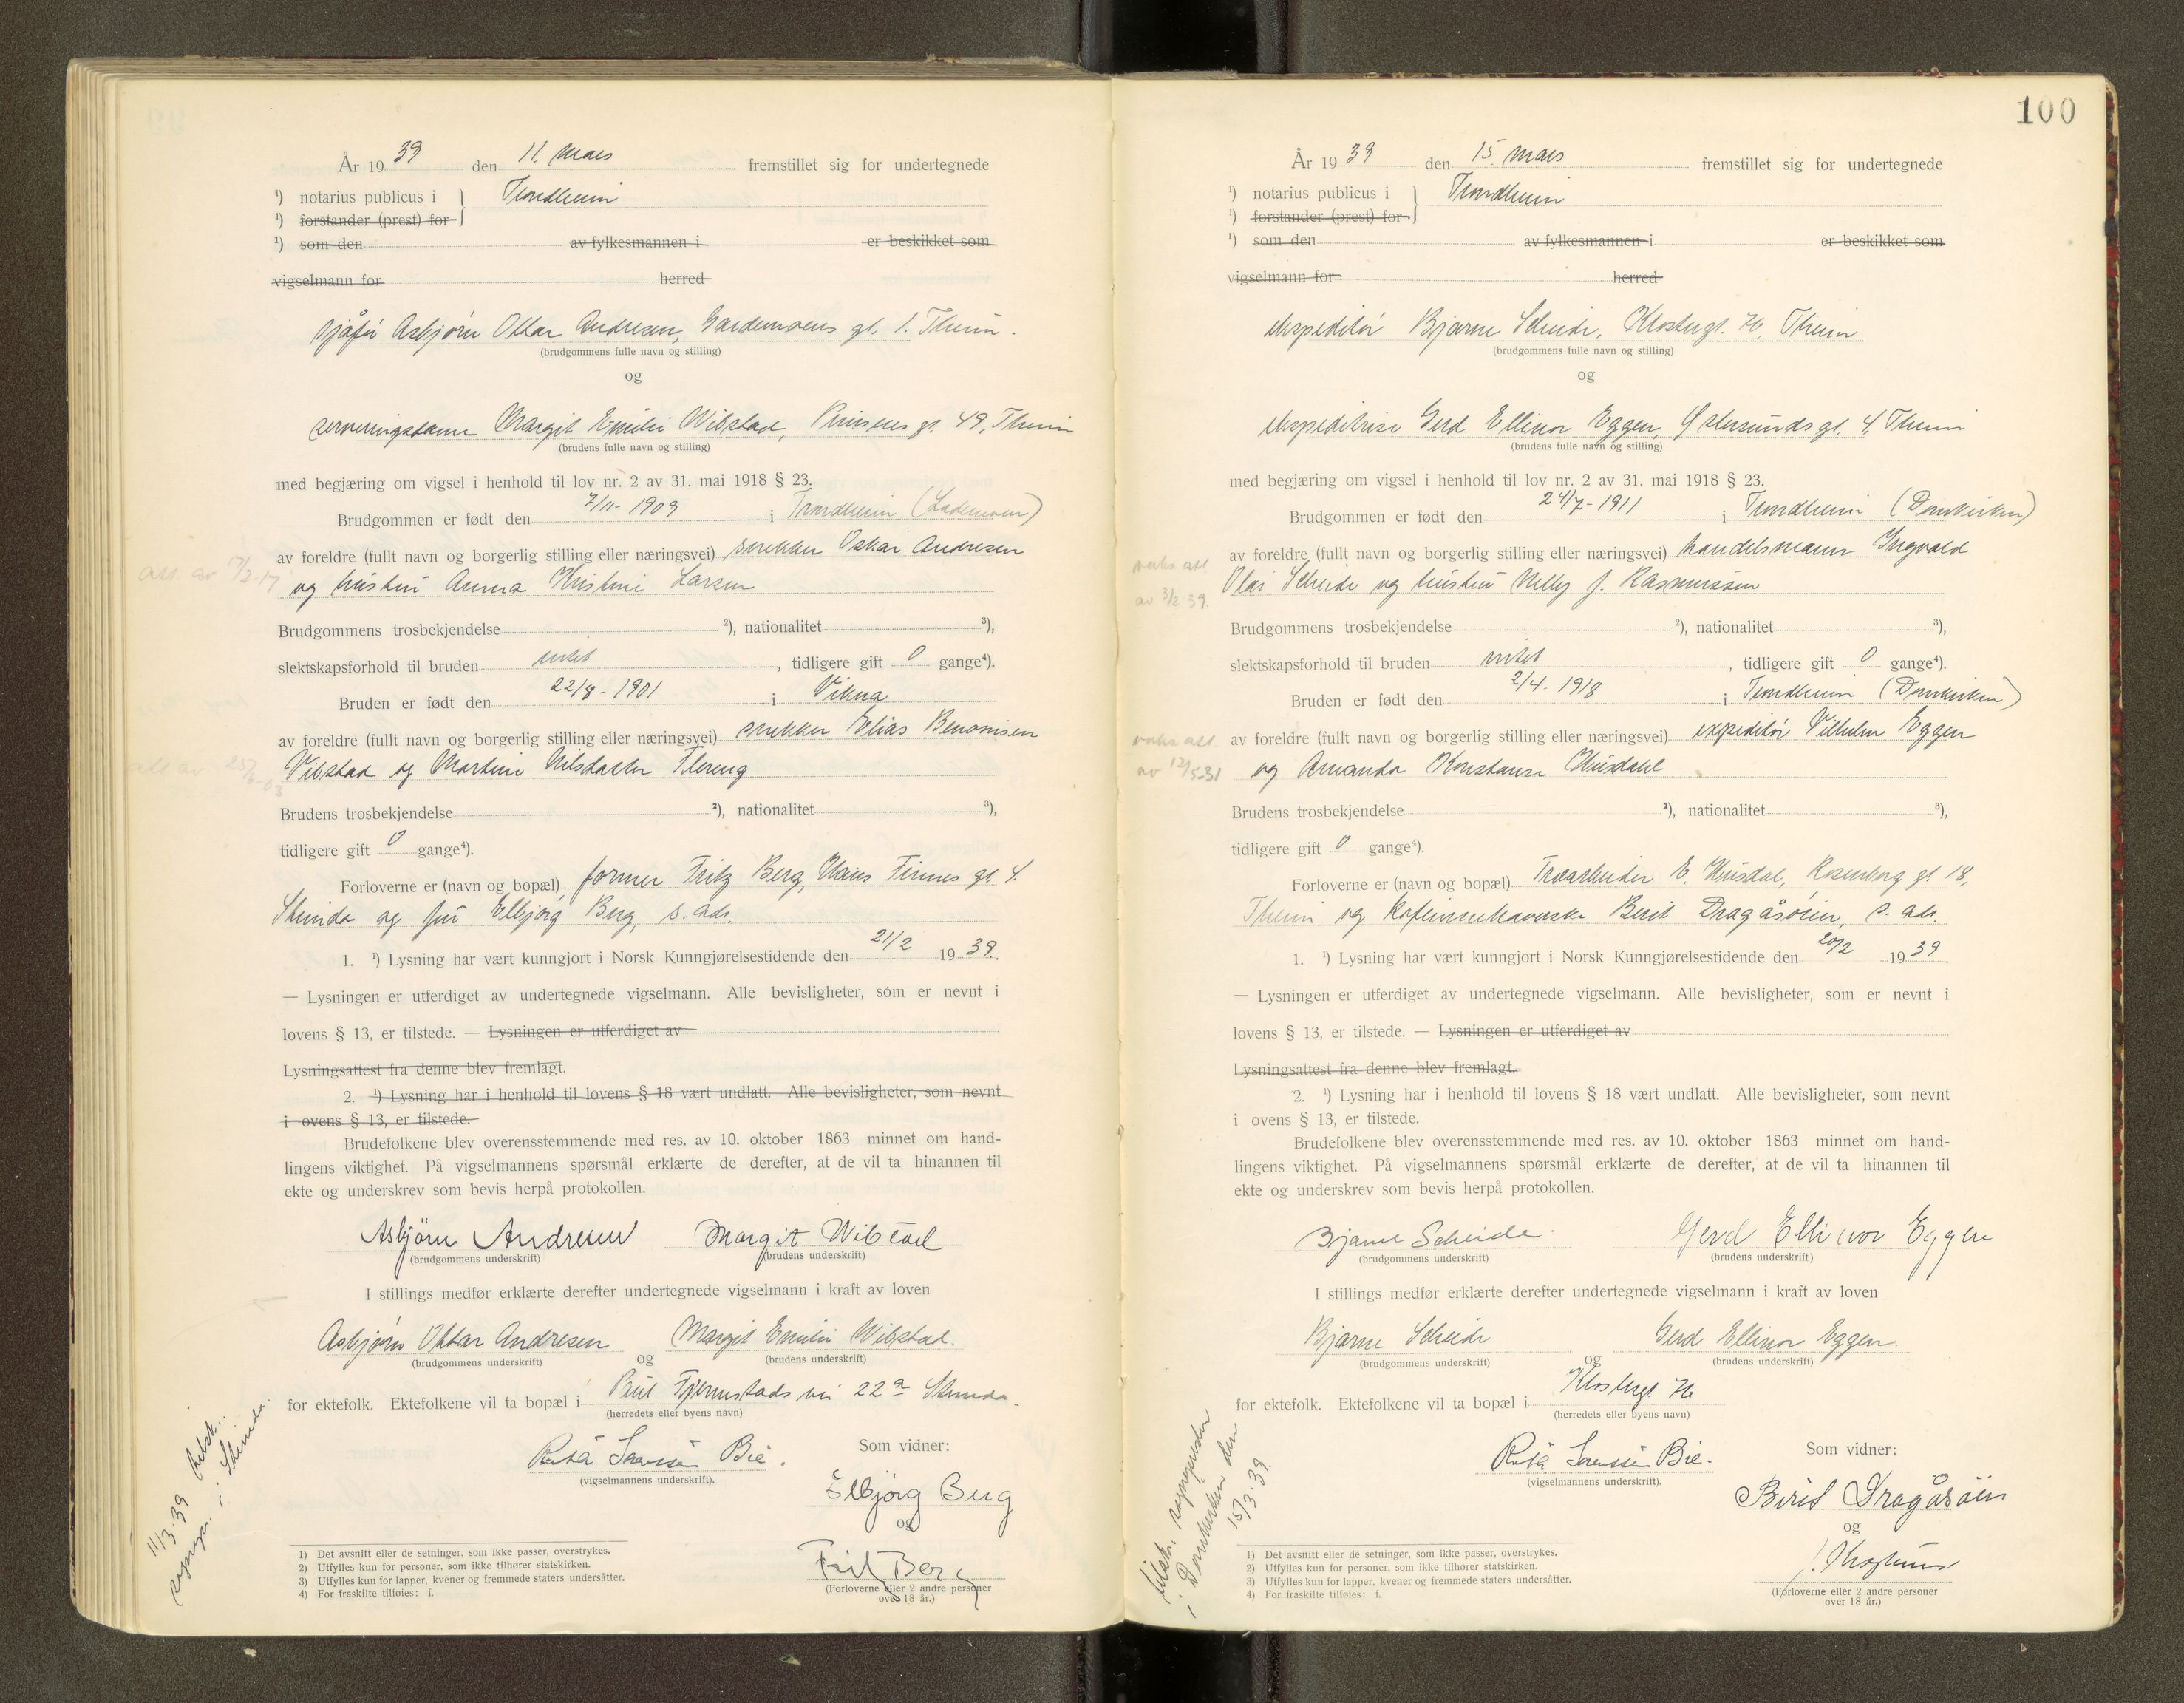 År 19 39 den 11. mars fremstillet sig for undertegnede
¹) notarius publicus i } Trondheim
¹) forstander (prest) for
¹) som den av fylkesmannen i er beskikket som
vigselmann for herred
sjåfør Asbjørn Ottar Andresen, Gardemoens gt. 1. Theim.
(brudgommens fulle navn og stilling)
og
serveringsdame Margit Emilie Wibstad, Prinsens gt. 49, Theim
(brudens fulle navn og stilling)
med begjæring om vigsel i henhold til lov nr. 2 av 31. mai 1918 § 23.
Brudgommen er født den 7/11-1909 i Trondheim (Lademoen)
av foreldre (fullt navn og borgerlig stilling eller næringsvei) snekker Oskar Andresen
att. av
og hustru Anna Kristine Larsen
Brudgommens trosbekjendelse ²), nationalitet ³),
slektskapsforhold til bruden intet, tidligere gift 0 gange⁴).
Bruden er født den 22/8-1901 i Vikna
av foreldre (fullt navn og borgerlig stilling eller næringsvei) snekker Elias Benonisen
att av
Vibstad og Martine Nilsdatter Flereng
Brudens trosbekjendelse ²), nationalitet ³),
tidligere gift 0 gange⁴).
Forloverne er (navn og bopæl) former Fritz Berg, Hans Finnes gt. 4.
Strinda og fru Elbjørg Berg, s. ads.
1. ¹) Lysning har vært kunngjort i Norsk Kunngjørelsestidende den 21/2 19 39.
— Lysningen er utferdiget av undertegnede vigselmann. Alle bevisligheter, som er nevnt i
lovens § 13, er tilstede. — Lysningen er utferdiget av
Lysningsattest fra denne blev fremlagt.
2. ¹) Lysning har i henhold til lovens § 18 vært undlatt. Alle bevisligheter, som nevnt
i ovens § 13, er tilstede.
Brudefolkene blev overensstemmende med res. av 10. oktober 1863 minnet om hand-
lingens viktighet. På vigselmannens spørsmål erklærte de derefter, at de vil ta hinannen til
ekte og underskrev som bevis herpå protokollen.
Asbjørn Andresen Margit Wibstad
(brudgommens underskrift) (brudens underskrift)
I stillings medfør erklærte derefter undertegnede vigselmann i kraft av loven
Asbjørn Ottar Andresen og Margit Emilie Wibstad.
(brudgommens underskrift) (brudens underskrift)
for ektefolk. Ektefolkene vil ta bopæl i Paul Fjermstads vei 22a Strinda.
(herredets eller byens navn)
Bie. Som vidner:
(vigselmannens underskrift).
Elbjørg Berg
og
Frit Berg
(Forloverne eller 2 andre personer
over 18 år.)
11/3 39 tilsk.
sognepr. i Strinda.
1) Det avsnitt eller de setninger, som ikke passer, overstrykes.
2) Utfylles kun for personer, som ikke tilhører statskirken.
3) Utfylles kun for lapper, kvener og fremmede staters undersåtter.
4) For fraskilte tilføies: f.
100
År 19 39 den 15. mars fremstillet sig for undertegnede
¹) notarius publicus i } Trondheim
¹) forstander (prest) for
¹) som den av fylkesmannen i er beskikket som
vigselmann for herred
ekspeditør Bjarne Scheide, Klostergt. 76, Theim
(brudgommens fulle navn og stilling)
og
ekspeditrise Gerd Ellinor Eggen, Østersunds gt. 4, Theim
(brudens fulle navn og stilling)
med begjæring om vigsel i henhold til lov nr. 2 av 31. mai 1918 § 23.
Brudgommen er født den 24/7-1911 i Trondheim (Domkirken)
av foreldre (fullt navn og borgerlig stilling eller næringsvei) handelsmann Ingvald
vaks att
av 3/2 39.
Olai Scheide og hustru Nelly f. Rasmussen
Brudgommens trosbekjendelse ²), nationalitet ³),
slektskapsforhold til bruden intet, tidligere gift 0 gange⁴).
Bruden er født den 2/4-1918 i Trondheim (Domkirken)
av foreldre (fullt navn og borgerlig stilling eller næringsvei) expeditør Vilhelm Eggen
vaks att
av 12/5 31
og Amanda Konstanse Husdahl
Brudens trosbekjendelse ²), nationalitet ³),
tidligere gift 0 gange⁴).
Forloverne er (navn og bopæl) Trearbeider E. Husdal, Rosenborg gt 18,
Theim og Berit Dragåsøien, s. ads.
1. ¹) Lysning har vært kunngjort i Norsk Kunngjørelsestidende den 20/2 19 39.
— Lysningen er utferdiget av undertegnede vigselmann. Alle bevisligheter, som er nevnt i
lovens § 13, er tilstede. — Lysningen er utferdiget av
Lysningsattest fra denne blev fremlagt.
2. ¹) Lysning har i henhold til lovens § 18 vært undlatt. Alle bevisligheter, som nevnt
i ovens § 13, er tilstede.
Brudefolkene blev overensstemmende med res. av 10. oktober 1863 minnet om hand-
lingens viktighet. På vigselmannens spørsmål erklærte de derefter, at de vil ta hinannen til
ekte og underskrev som bevis herpå protokollen.
Bjarne Scheide. Gerd Ellinor Eggen
(brudgommens underskrift) (brudens underskrift)
I stillings medfør erklærte derefter undertegnede vigselmann i kraft av loven
Bjarne Scheide og Gerd Ellinor Eggen.
(brudgommens underskrift) (brudens underskrift)
for ektefolk. Ektefolkene vil ta bopæl i Klostergt 76
(herredets eller byens navn)
Bie. Som vidner:
(vigselmannens underskrift).
Berit Dragåsøien
og
(Forloverne eller 2 andre personer
over 18 år.)
tilsk. sognepresten
i Domkirken den
15/3 39.
1) Det avsnitt eller de setninger, som ikke passer, overstrykes.
2) Utfylles kun for personer, som ikke tilhører statskirken.
3) Utfylles kun for lapper, kvener og fremmede staters undersåtter.
4) For fraskilte tilføies: f.